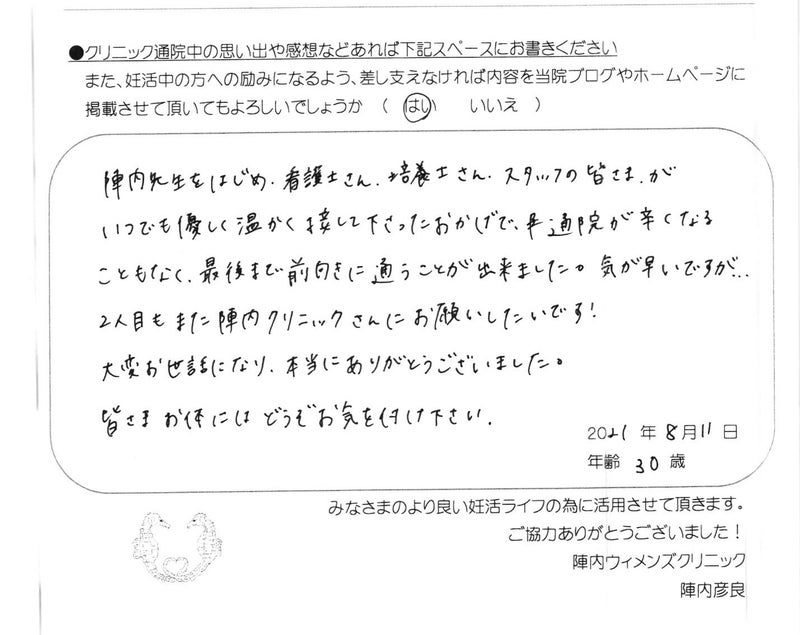 ●クリニック通院中の思い出や感想などあれば下記スペースにお書きください
また、妊活中の方への励みになるよう、差し支えなければ内容を当院ブログやホームページに
掲載させて頂いてもよろしいでしょうか （ はい いいえ ）
陣内先生をはじめ、看護士さん、培養士さん、スタッフの皆さまが
いつでも優しく温かく接して下さったおかげで、通院が辛くなる
こともなく、最後まで前向きに通うことが出来ました。気が早いですが…
2人目もまた陣内クリニックさんにお願いしたいです！
大変お世話になり、本当にありがとうございました。
皆さまお体にはどうぞお気を付け下さい。
2021 年 8月11日
年齢 30 歳
みなさまのより良い妊活ライフの為に活用させて頂きます。
ご協力ありがとうございました！
陣内ウィメンズクリニック
陣内彦良